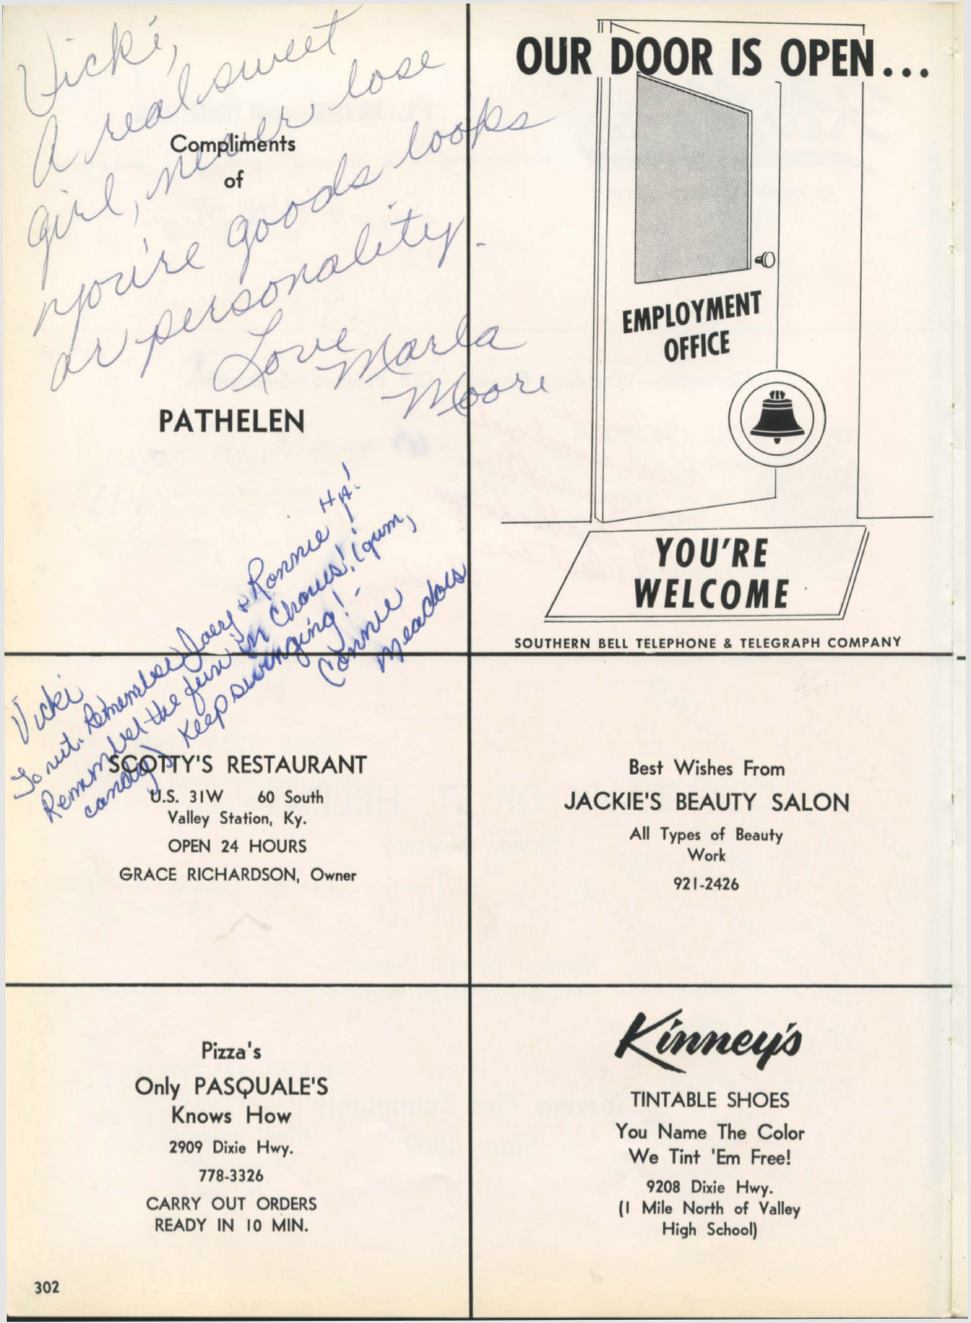 Vicki,
A real sweet
girl, never lose
you're goods looks
or personality.
Love
Marla
Moore
Compliments
of
PATHELEN
OUR DOOR IS OPEN...
EMPLOYMENT
OFFICE
YOU'RE
WELCOME
SOUTHERN BELL TELEPHONE & TELEGRAPH COMPANY
Vicki
Remember & Ronnie
Remember the fun in Chorus! (gum,
candy) Keep swinging!
Connie
Meadows
SCOTTY'S RESTAURANT
U.S. 31W 60 South
Valley Station, Ky.
OPEN 24 HOURS
GRACE RICHARDSON, Owner
Best Wishes From
JACKIE'S BEAUTY SALON
All Types of Beauty
Work
921-2426
Pizza's
Only PASQUALE'S
Knows How
2909 Dixie Hwy.
778-3326
CARRY OUT ORDERS
READY IN 10 MIN.
Kinney's
TINTABLE SHOES
You Name The Color
We Tint 'Em Free!
9208 Dixie Hwy.
(1 Mile North of Valley
High School)
302